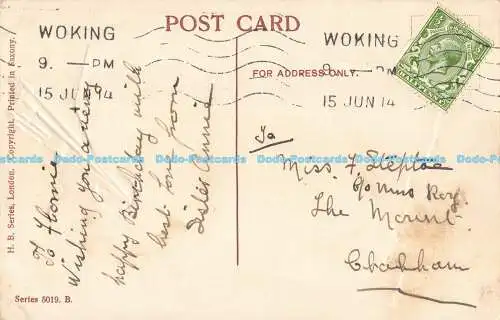 WOKING
9. — PM
15 JUN 14
POST CARD
WOKING
9. — PM
15 JUN 14
FOR ADDRESS ONLY.
H. B. Series, London. Copyright. Printed in Saxony.
To Florrie
Wishing you a very
happy Birthday with
best love from
Sister Annie
To
Miss F. Steptoe
c/o Mrs
The Mount
Chobham
Dodo-Postcards Dodo-Postcards Dodo-Postcards Dodo-Postcards Dodo-Postcards
Series 5019. B.